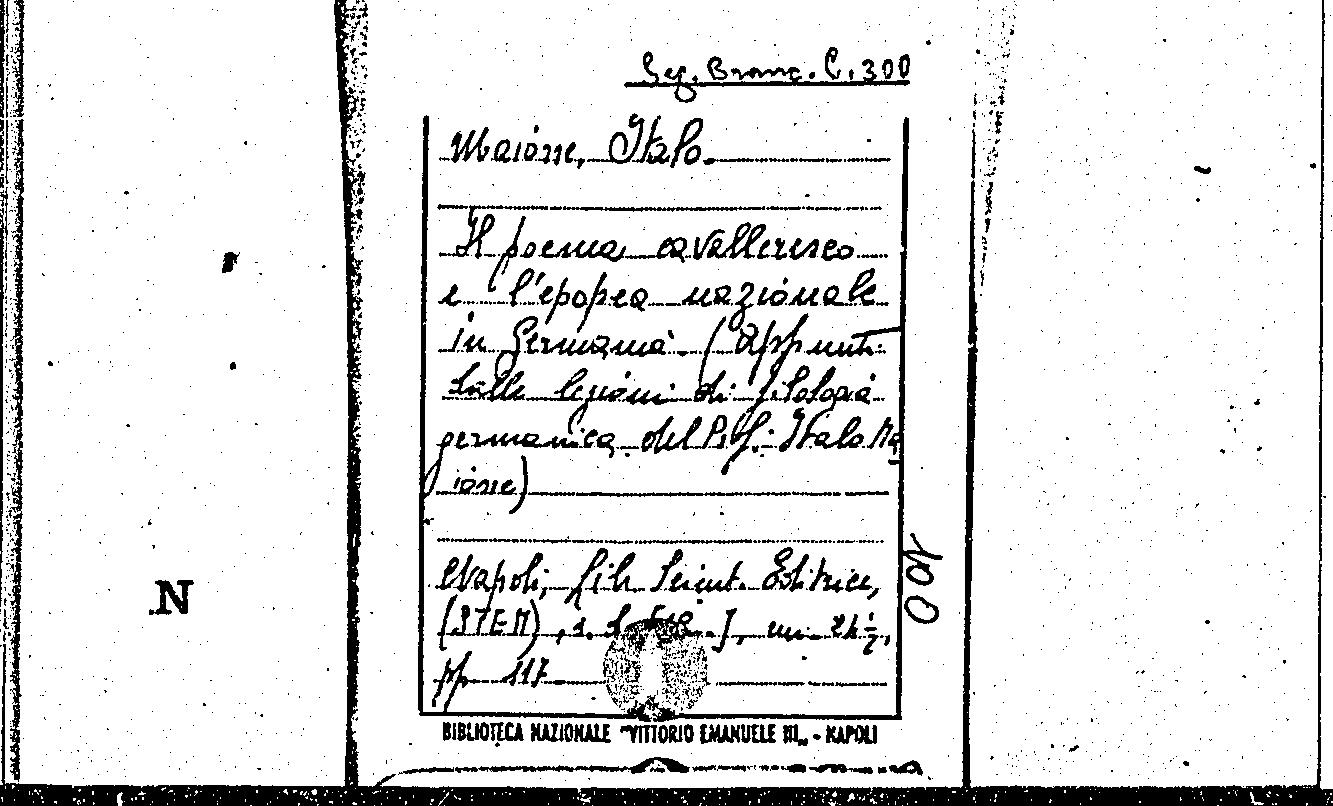 Sez. Branc. C. 300
Maione, Italo.
Il poema cavalleresco
e l'epopea nazionale
in Germania. (Appunti
sulle lezioni di filologia
germanica del Prof. Italo Ma
ione)
Napoli, Lib. Scient. Editrice,
(STEM), s. in- 24 ½,
pp 117
BIBLIOTECA NAZIONALE "VITTORIO EMANUELE III„ - NAPOLI
N